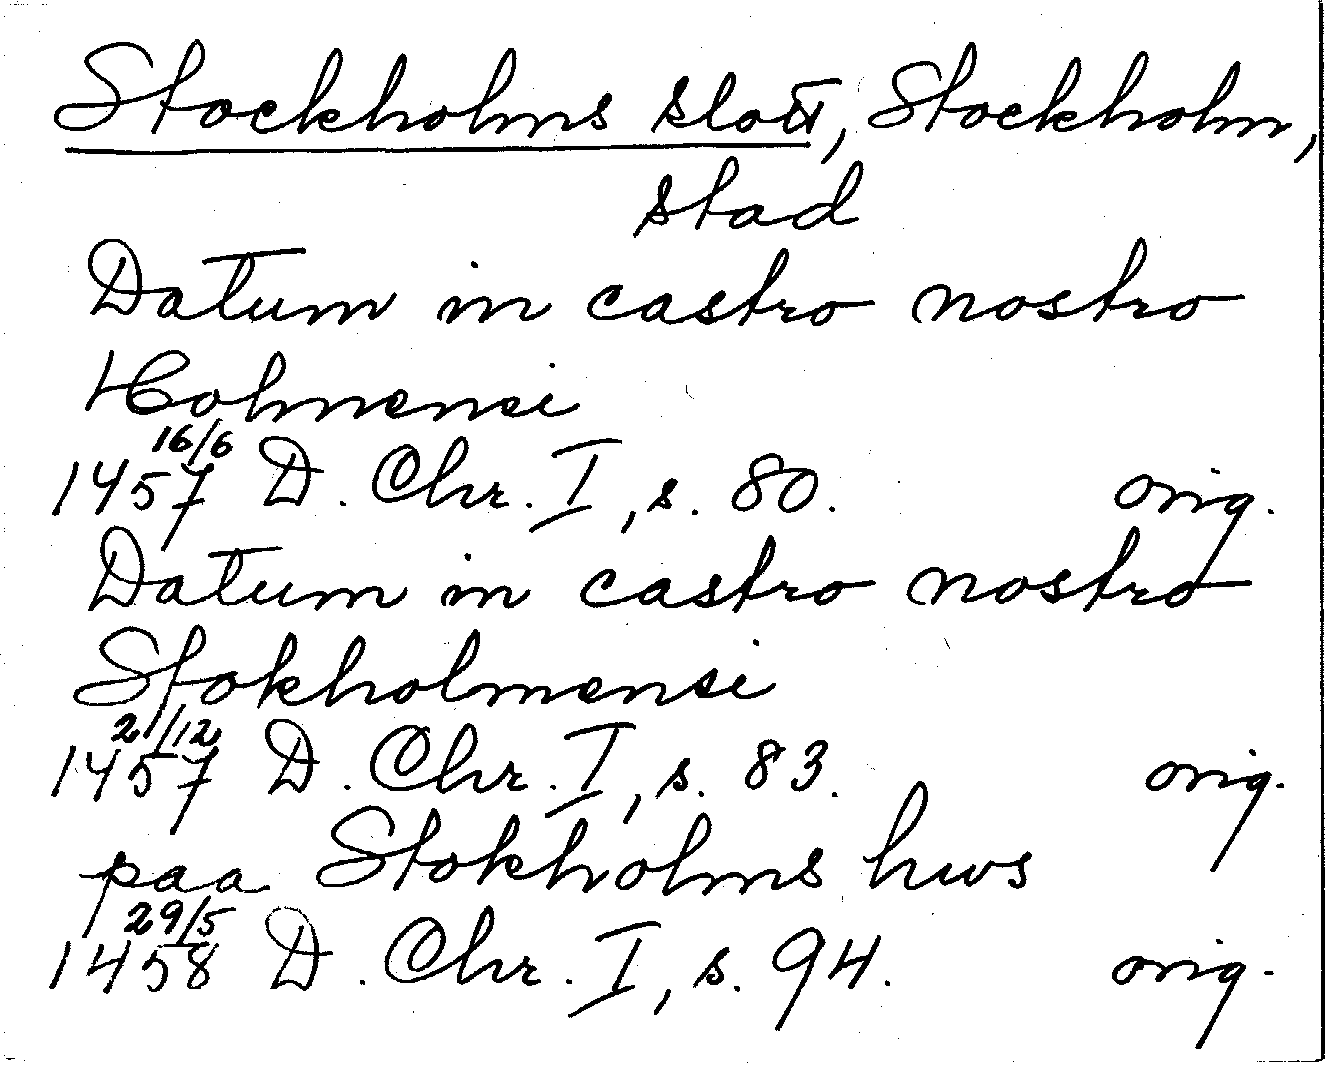 Stockholms slott, Stockholm,
stad
Datum in castro nostro
Holmensi
16/6
1457 D. Chr. I, s. 80. orig.
Datum in castro nostro
Stokholmensi
21/12
1457 D. Chr. I, s. 83. orig.
paa Stokholms hws
29/5
1458 D. Chr. I, s. 94. orig.